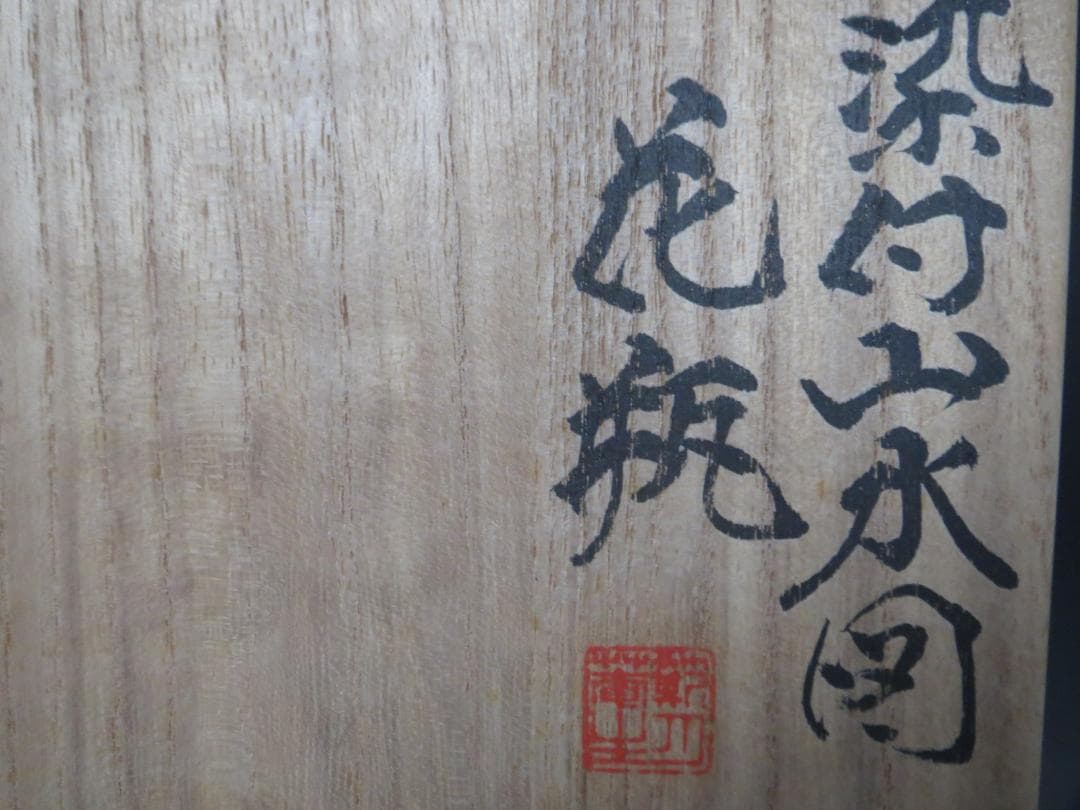 染付山水図
花瓶